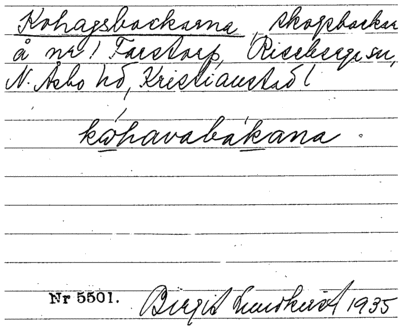 Kohagsbackarna, skogsbackar
å nr 1 Färstorp, Riseberga sn,
N. Åsbo hd, Kristianstad l
kωhavabákana.
Nr 5501. Birgit Lundkvist 1935